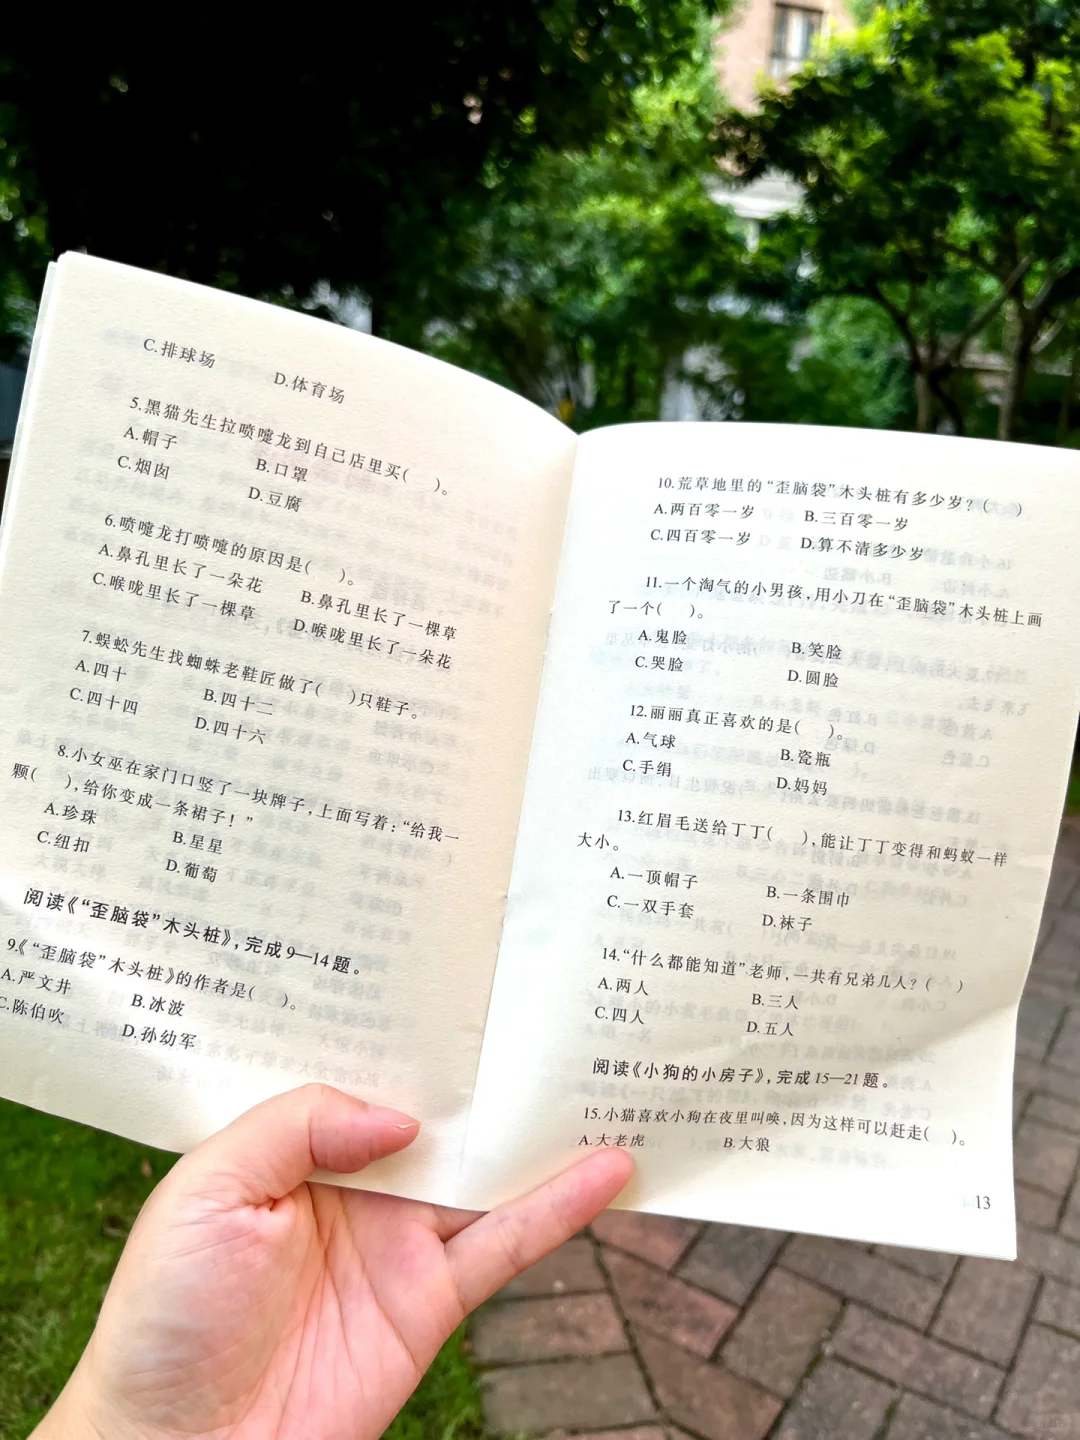 C.排球场 D.体育场
5.黑猫先生拉喷嚏龙到自己店里买( )。
A.帽子 B.口罩
C.烟囱 D.豆腐
6.喷嚏龙打喷嚏的原因是( )。
A.鼻孔里长了一朵花 B.鼻孔里长了一棵草
C.喉咙里长了一棵草 D.喉咙里长了一朵花
7.蜈蚣先生找蜘蛛老鞋匠做了( )只鞋子。
A.四十 B.四十二
C.四十四 D.四十六
8.小女巫在家门口竖了一块牌子,上面写着:“给我一
颗( ),给你变成一条裙子!”
A.珍珠 B.星星
C.纽扣 D.葡萄
阅读《“歪脑袋”木头桩》,完成9—14题。
9.《“歪脑袋”木头桩》的作者是( )。
A.严文井 B.冰波
C.陈伯吹 D.孙幼军
10.荒草地里的“歪脑袋”木头桩有多少岁?( )
A.两百零一岁 B.三百零一岁
C.四百零一岁 D.算不清多少岁
11.一个淘气的小男孩,用小刀在“歪脑袋”木头桩上画
了一个( )。
A.鬼脸 B.笑脸
C.哭脸 D.圆脸
12.丽丽真正喜欢的是( )。
A.气球 B.瓷瓶
C.手绢 D.妈妈
13.红眉毛送给丁丁( ),能让丁丁变得和蚂蚁一样
大小。
A.一顶帽子 B.一条围巾
C.一双手套 D.袜子
14.“什么都能知道”老师,一共有兄弟几人?( )
A.两人 B.三人
C.四人 D.五人
阅读《小狗的小房子》,完成15—21题。
15.小猫喜欢小狗在夜里叫唤,因为这样可以赶走( )。
A.大老虎 B.大狼
13